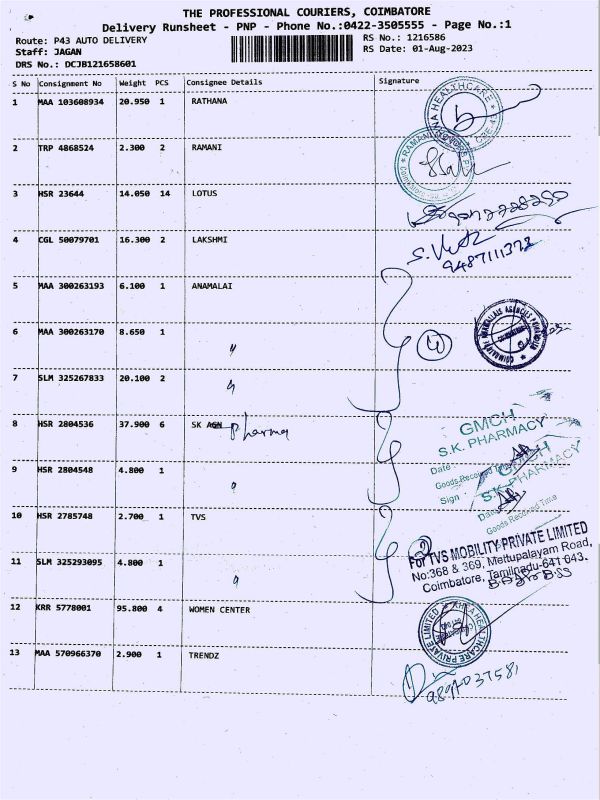 THE PROFESSIONAL COURIERS, COIMBATORE
Delivery Runsheet - PNP - Phone No.:0422-3505555 - Page No.:1
Route: P43 AUTO DELIVERY
RS No.: 1216586
Staff: JAGAN
RS Date: 01-Aug-2023
DRS No.: DCJB121658601
S No Consignment No Weight PCS Consignee Details Signature
1 MAA 103608934 20.950 1 RATHANA
2 TRP 4868524 2.300 2 RAMANI
3 HSR 23644 14.050 14 LOTUS
4 CGL 50079701 16.300 2 LAKSHMI
9487111373
5 MAA 300263193 6.100 1 ANAMALAI
6 MAA 300263170 8.650 1 "
7 SLM 325267833 20.100 2 "
8 HSR 2804536 37.900 6 SK AGN pharma
GMCH
S.K. PHARMACY
Date
Goods Received Time
Sign
9 HSR 2804548 4.800 1 "
GMCH
S.K. PHARMACY
Goods Received Time
10 HSR 2785748 2.700 1 TVS
For TVS MOBILITY PRIVATE LIMITED
No:368 & 369, Mettupalayam Road,
Coimbatore, Tamilnadu-641 043.
11 SLM 325293095 4.800 1 "
12 KRR 5778001 95.800 4 WOMEN CENTER
13 MAA 570966370 2.900 1 TRENDZ